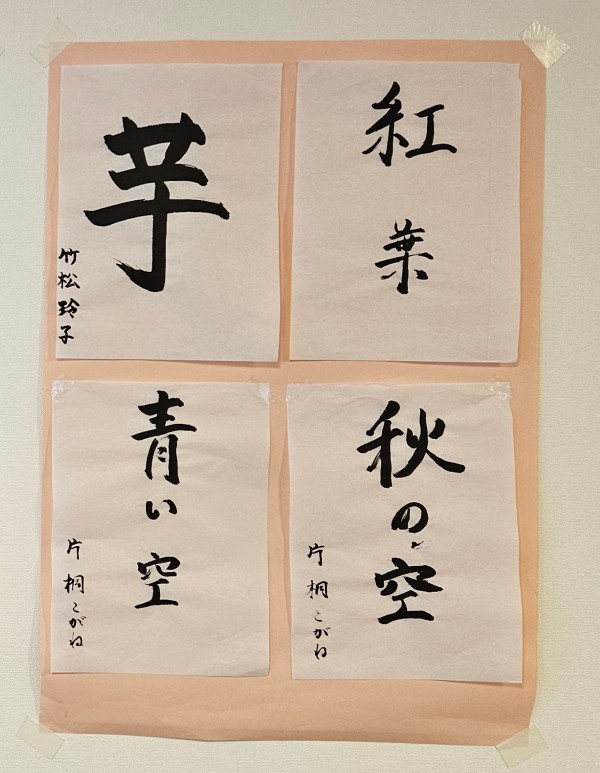 芋
竹松玲子
紅葉
青い空
片桐こがね
秋の空
片桐こがね